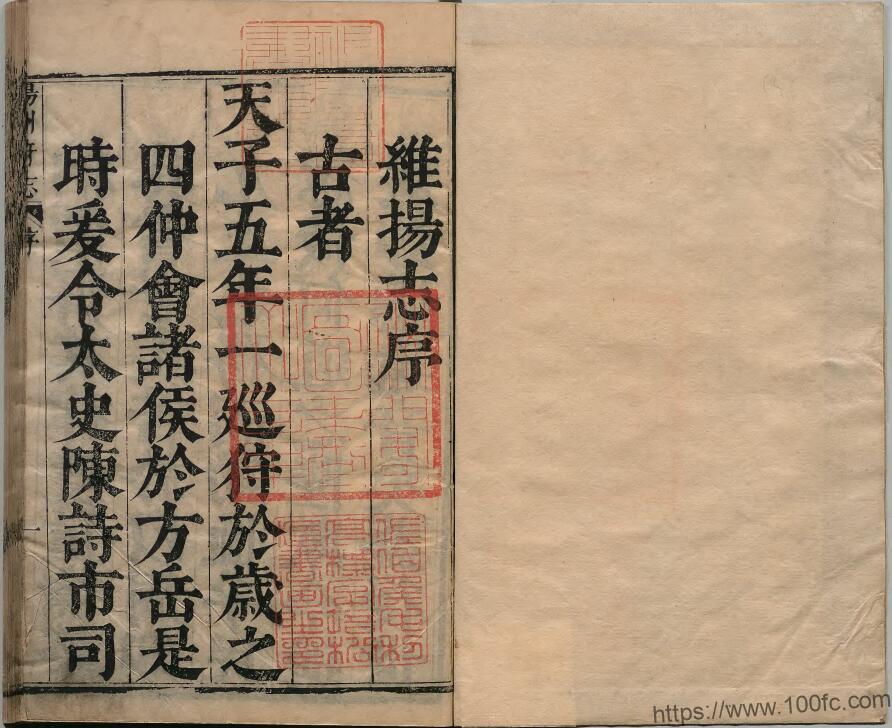 維揚志序
古者
天子五年一廵狩於歲之
四仲會諸侯於方岳是
時爰令太史陳詩市司
https://www.100fc.com